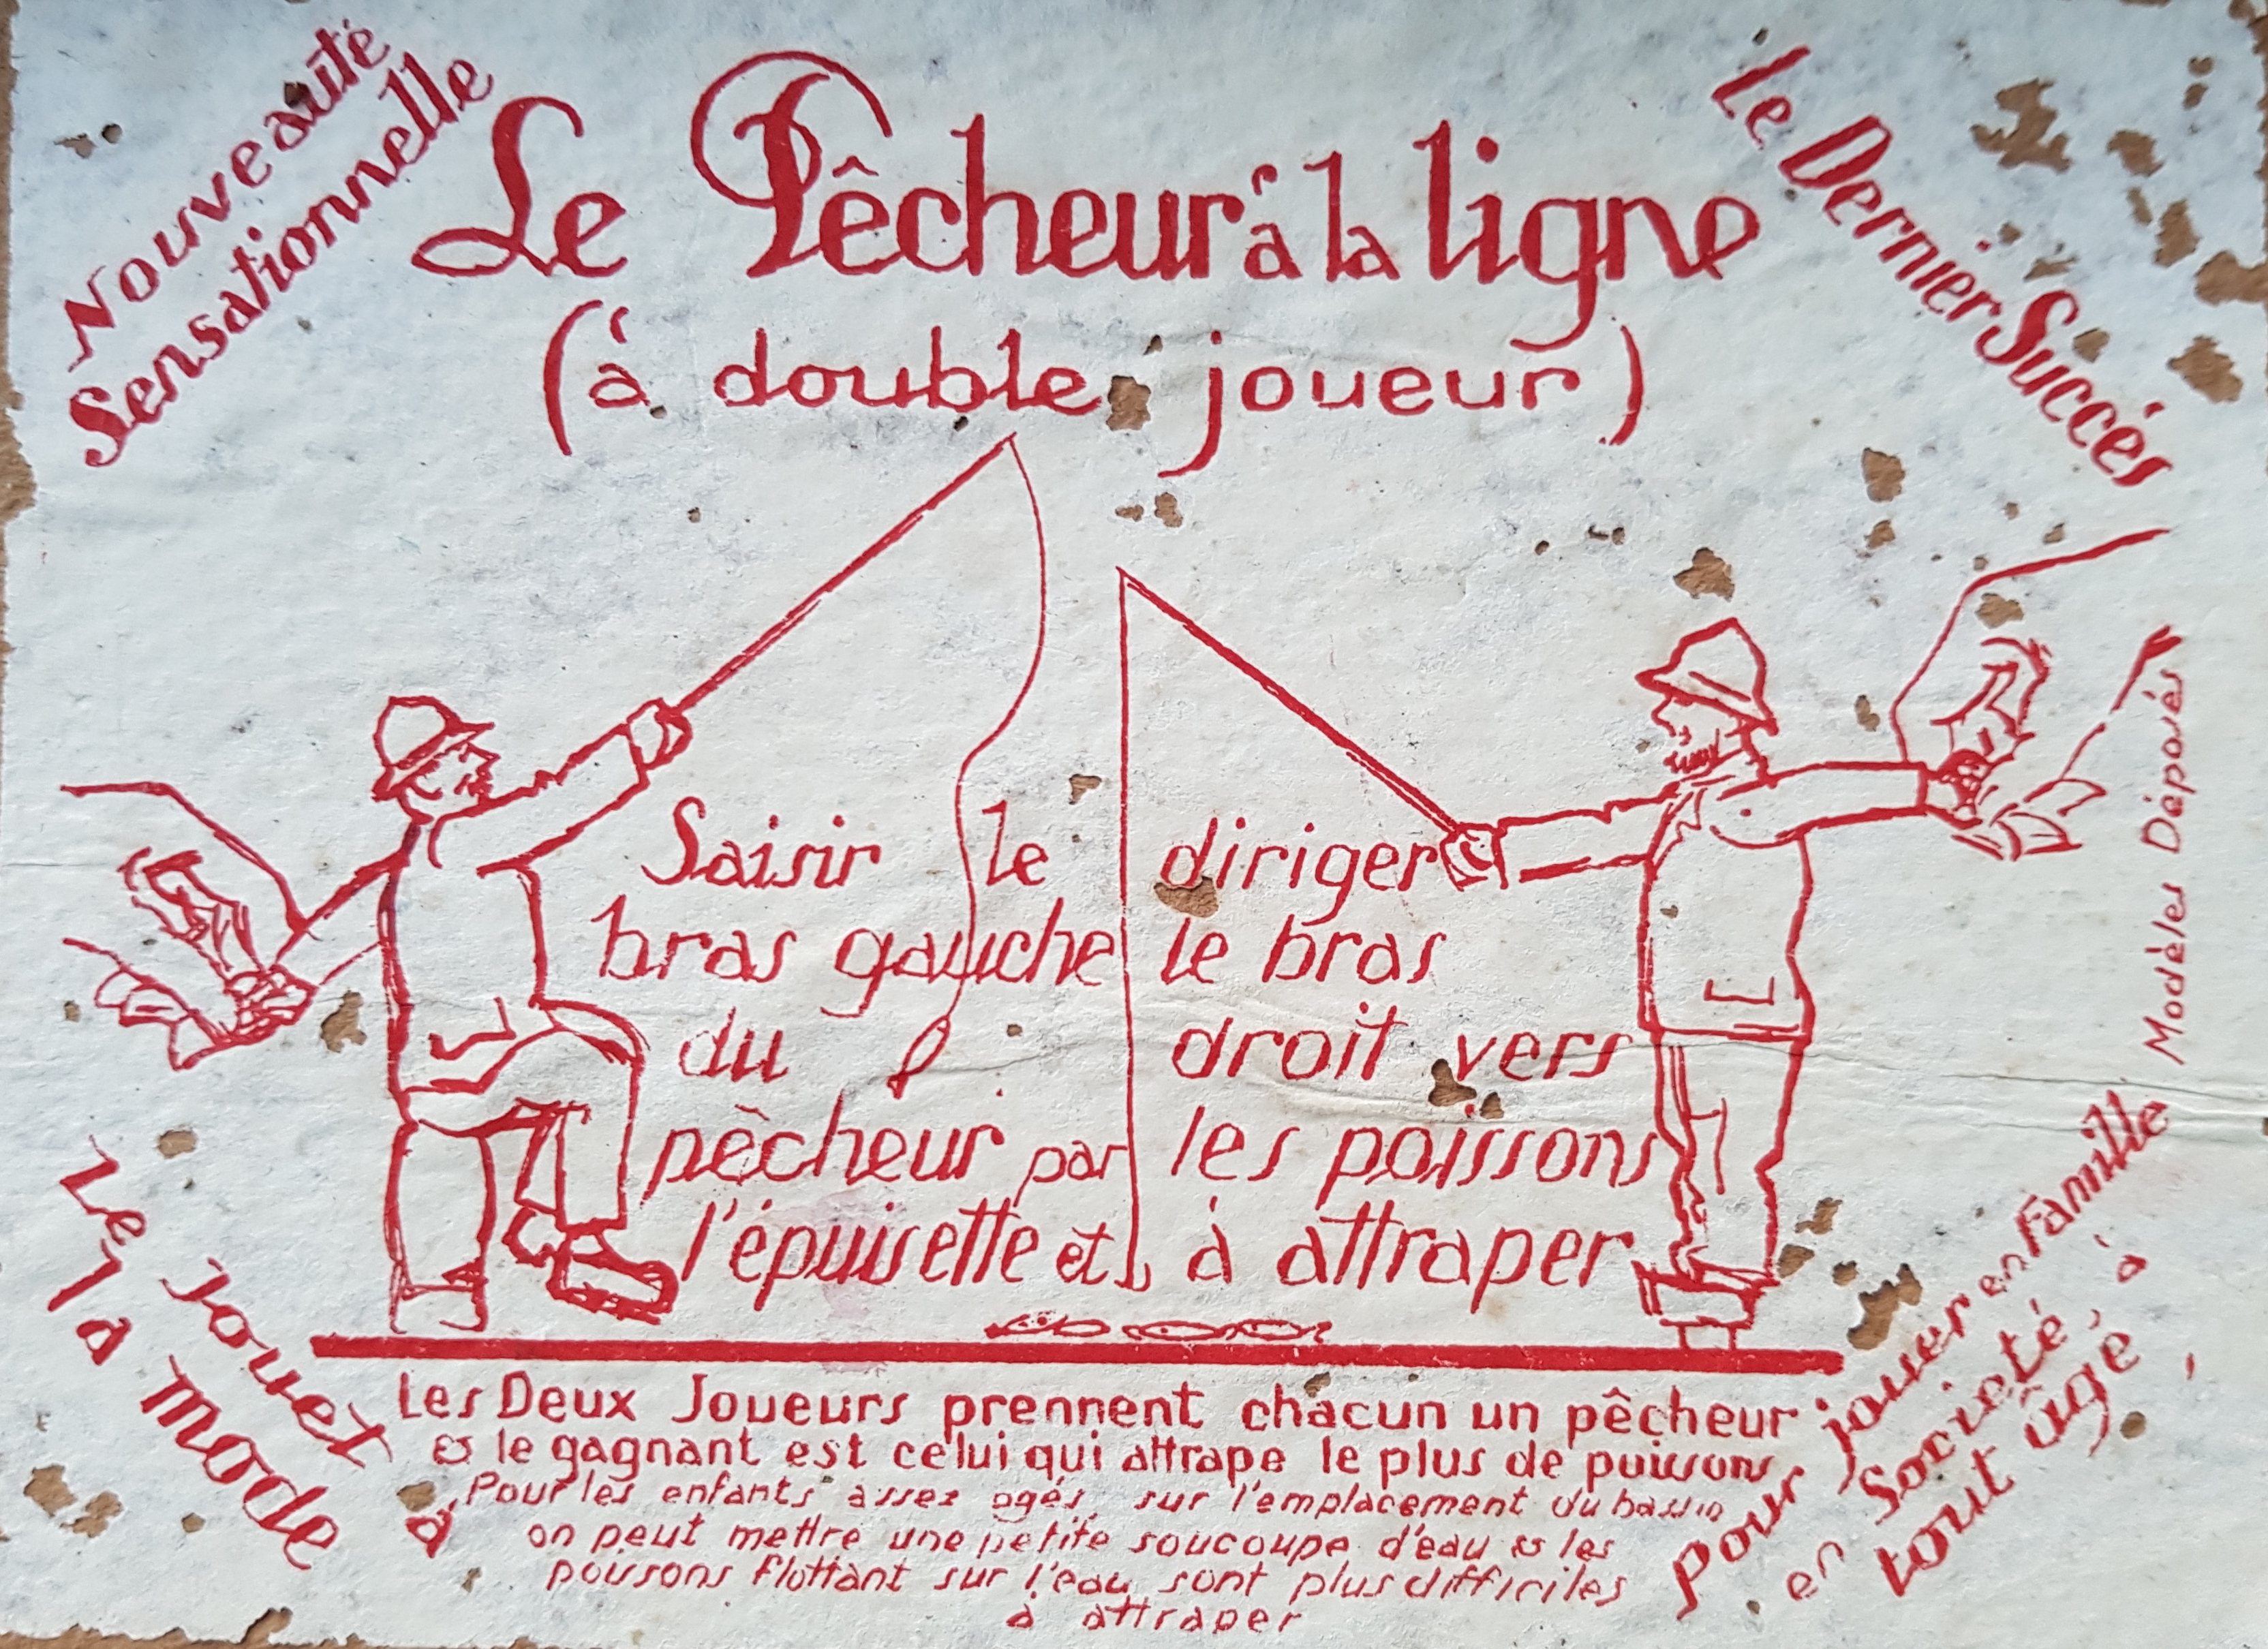 Nouveauté
Sensationnelle
Le Pêcheur à la ligne
(à double joueur)
Le Dernier Succés
Saisir le
bras gauche
du
pècheur par
l'épuisette et
diriger
le bras
droit vers
les poissons
à attraper
Modèles Déposés
Le Jouet à
la mode
Les Deux Joueurs prennent chacun un pêcheur
& le gagnant est celui qui attrape le plus de poissons
Pour les enfants assez agés, sur l'emplacement du bassin
on peut mettre une petite soucoupe d'eau & les
poissons flottant sur l'eau sont plus difficiles
à attraper
Pour jouer en Famille
en Société, à
tout âge